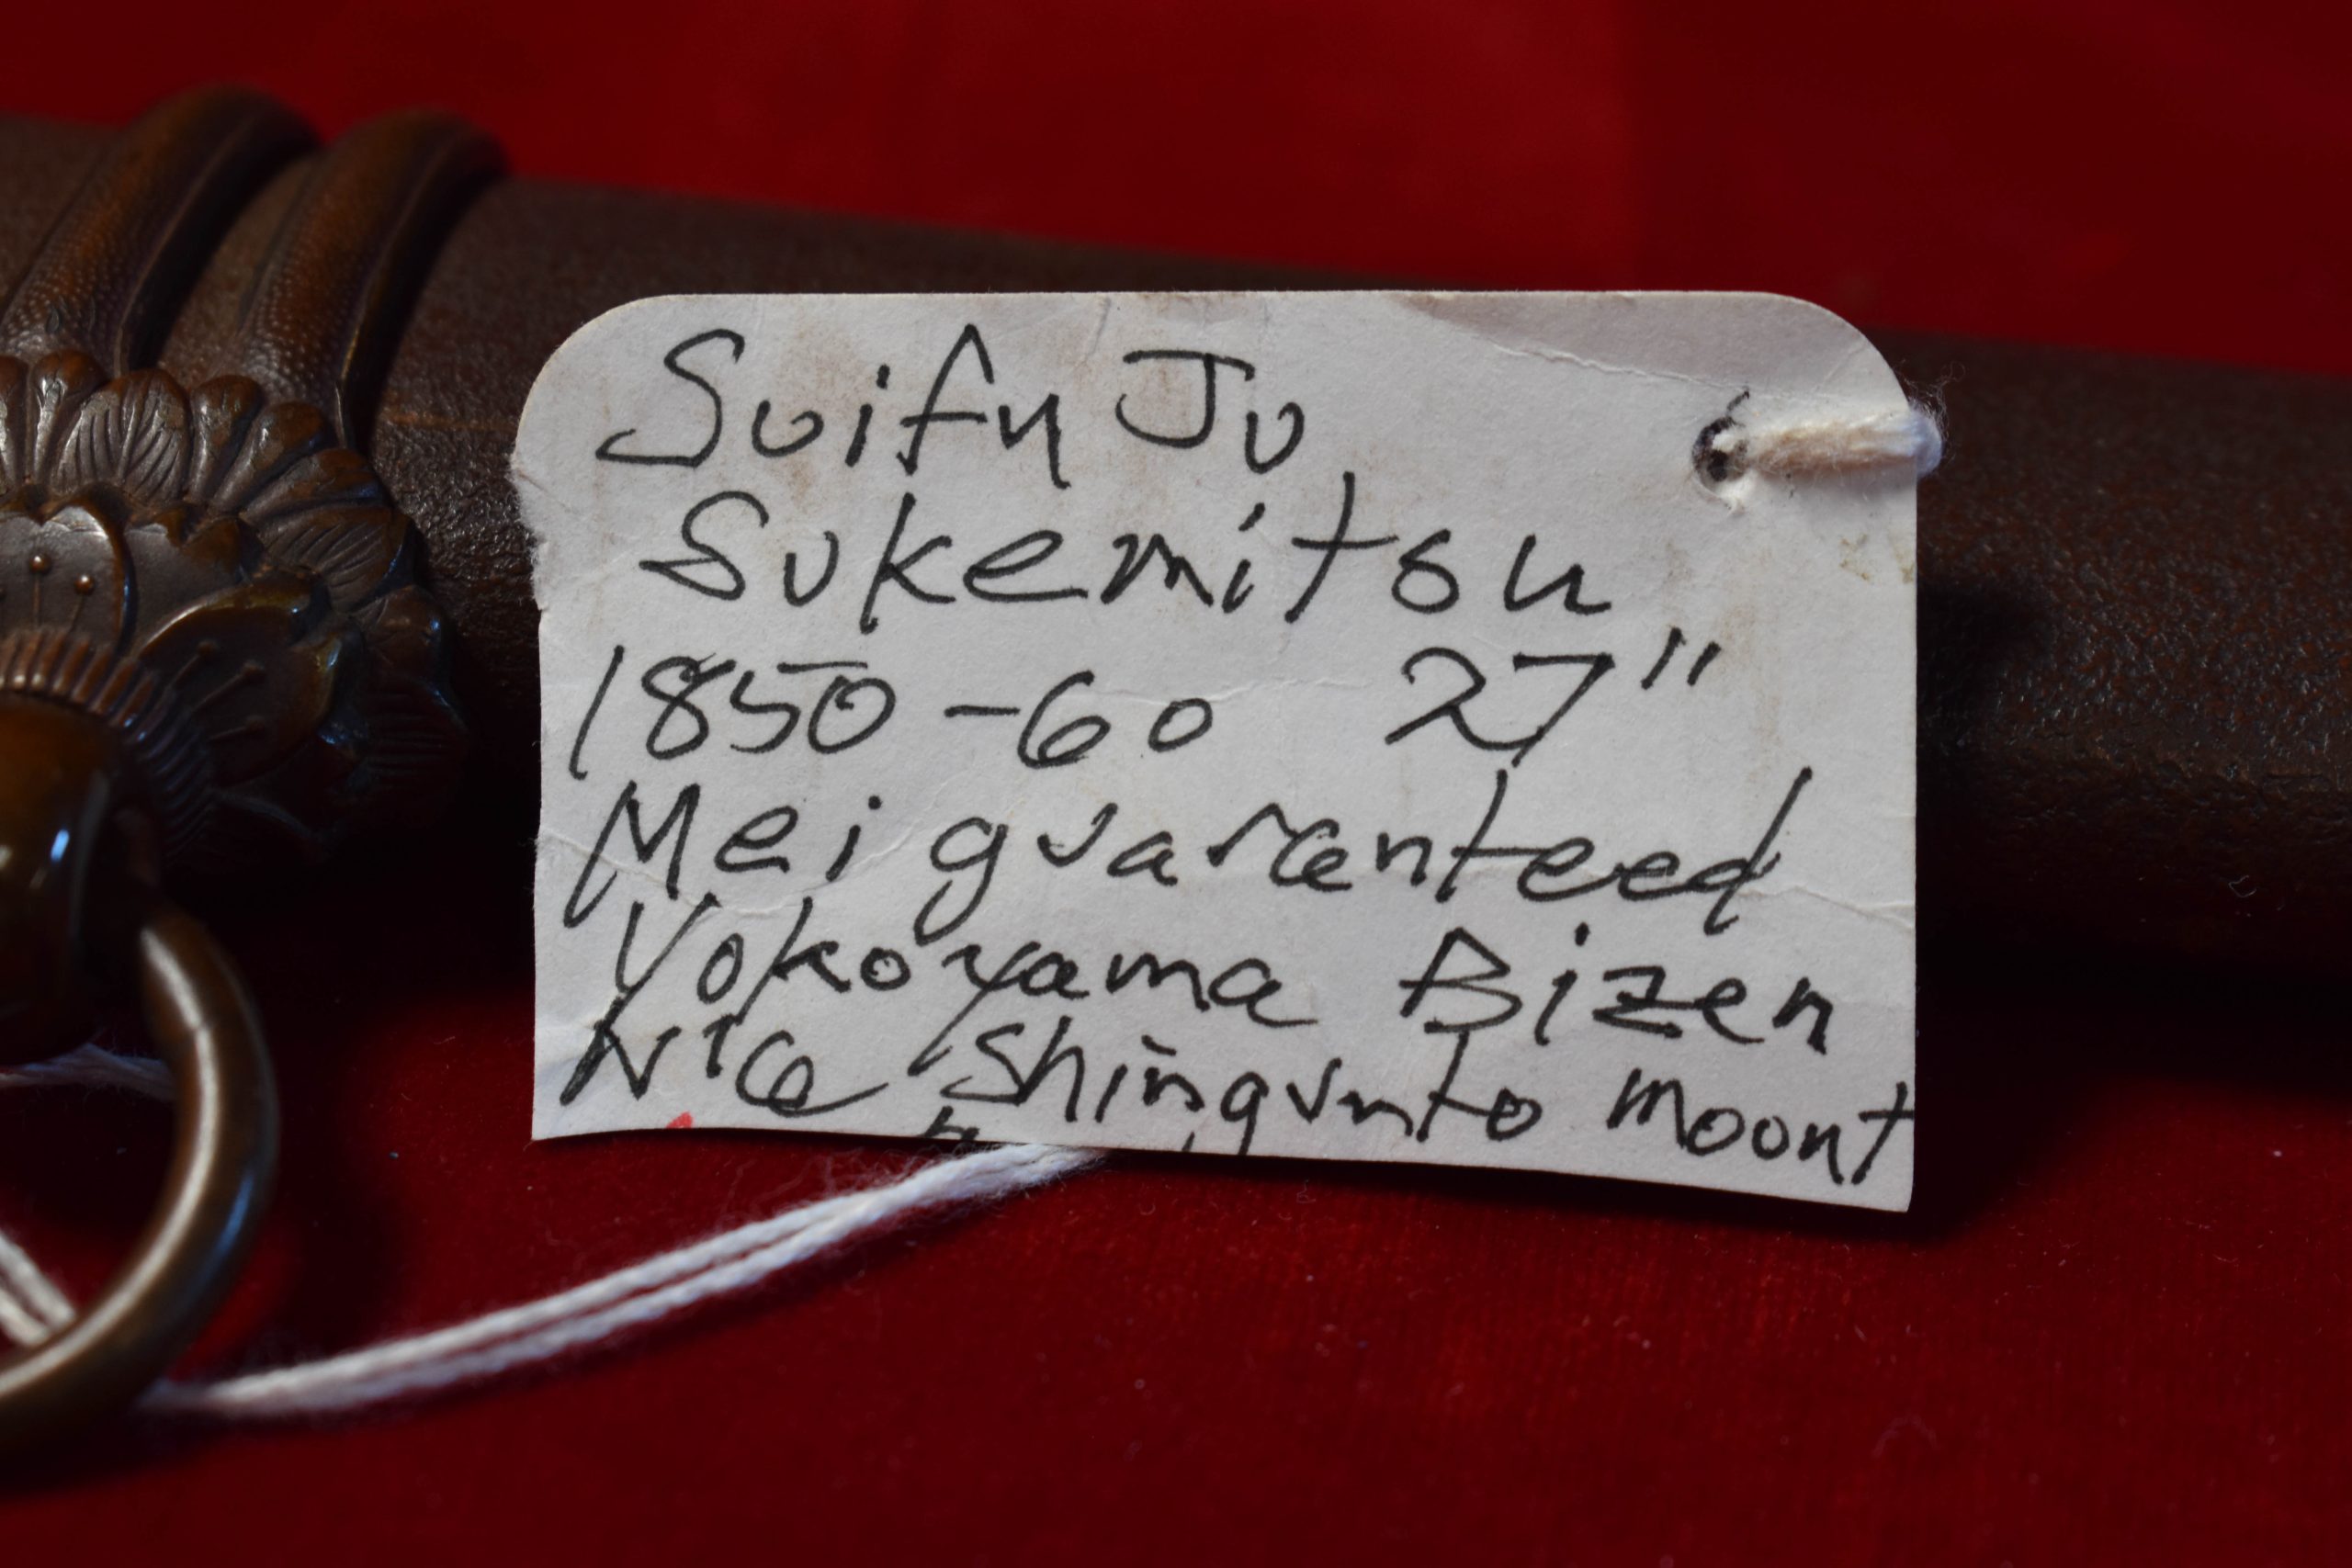 Suifu Ju
Sukemitsu
1850-60 27"
Mei guaranteed
Yokoyama Bizen
Nice Shingunto mount